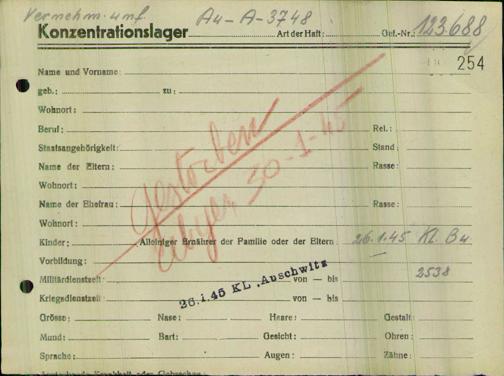 Vernehm. unf. Au-A-3748
Konzentrationslager Art der Haft: Gef.-Nr.: 123.688
254
Name und Vorname:
geb.: zu:
Wohnort:
Beruf: Rel.:
Staatsangehörigkeit: Stand:
Name der Eltern: Rasse:
Wohnort:
Name der Ehefrau: Rasse:
Wohnort:
Gestorben
30-1-45
Kinder: Alleiniger Ernährer der Familie oder der Eltern: 26.1.45 KL. Bu
Vorbildung:
Militärdienstzeit: von — bis 2538
Kriegsdienstzeit: 26.1.45 KL. Auschwitz von — bis
Grösse: Nase: Haare: Gestalt:
Mund: Bart: Gesicht: Ohren:
Sprache: Augen: Zähne: